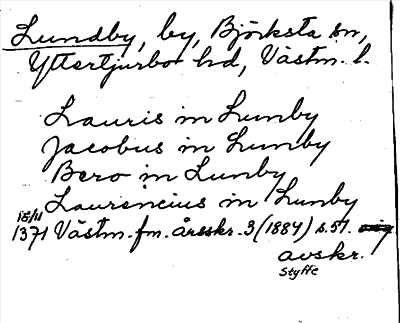 Lundby, by, Björksta sn,
Yttertjurbo hd, Västm. l.
Lauris in Lunby
Jacobus in Lunby
Bero in Lunby
Laurencius in Lunby
1371 Västm. fm. årsskr. 3 (1884) s. 57.
avskr.
Styffe